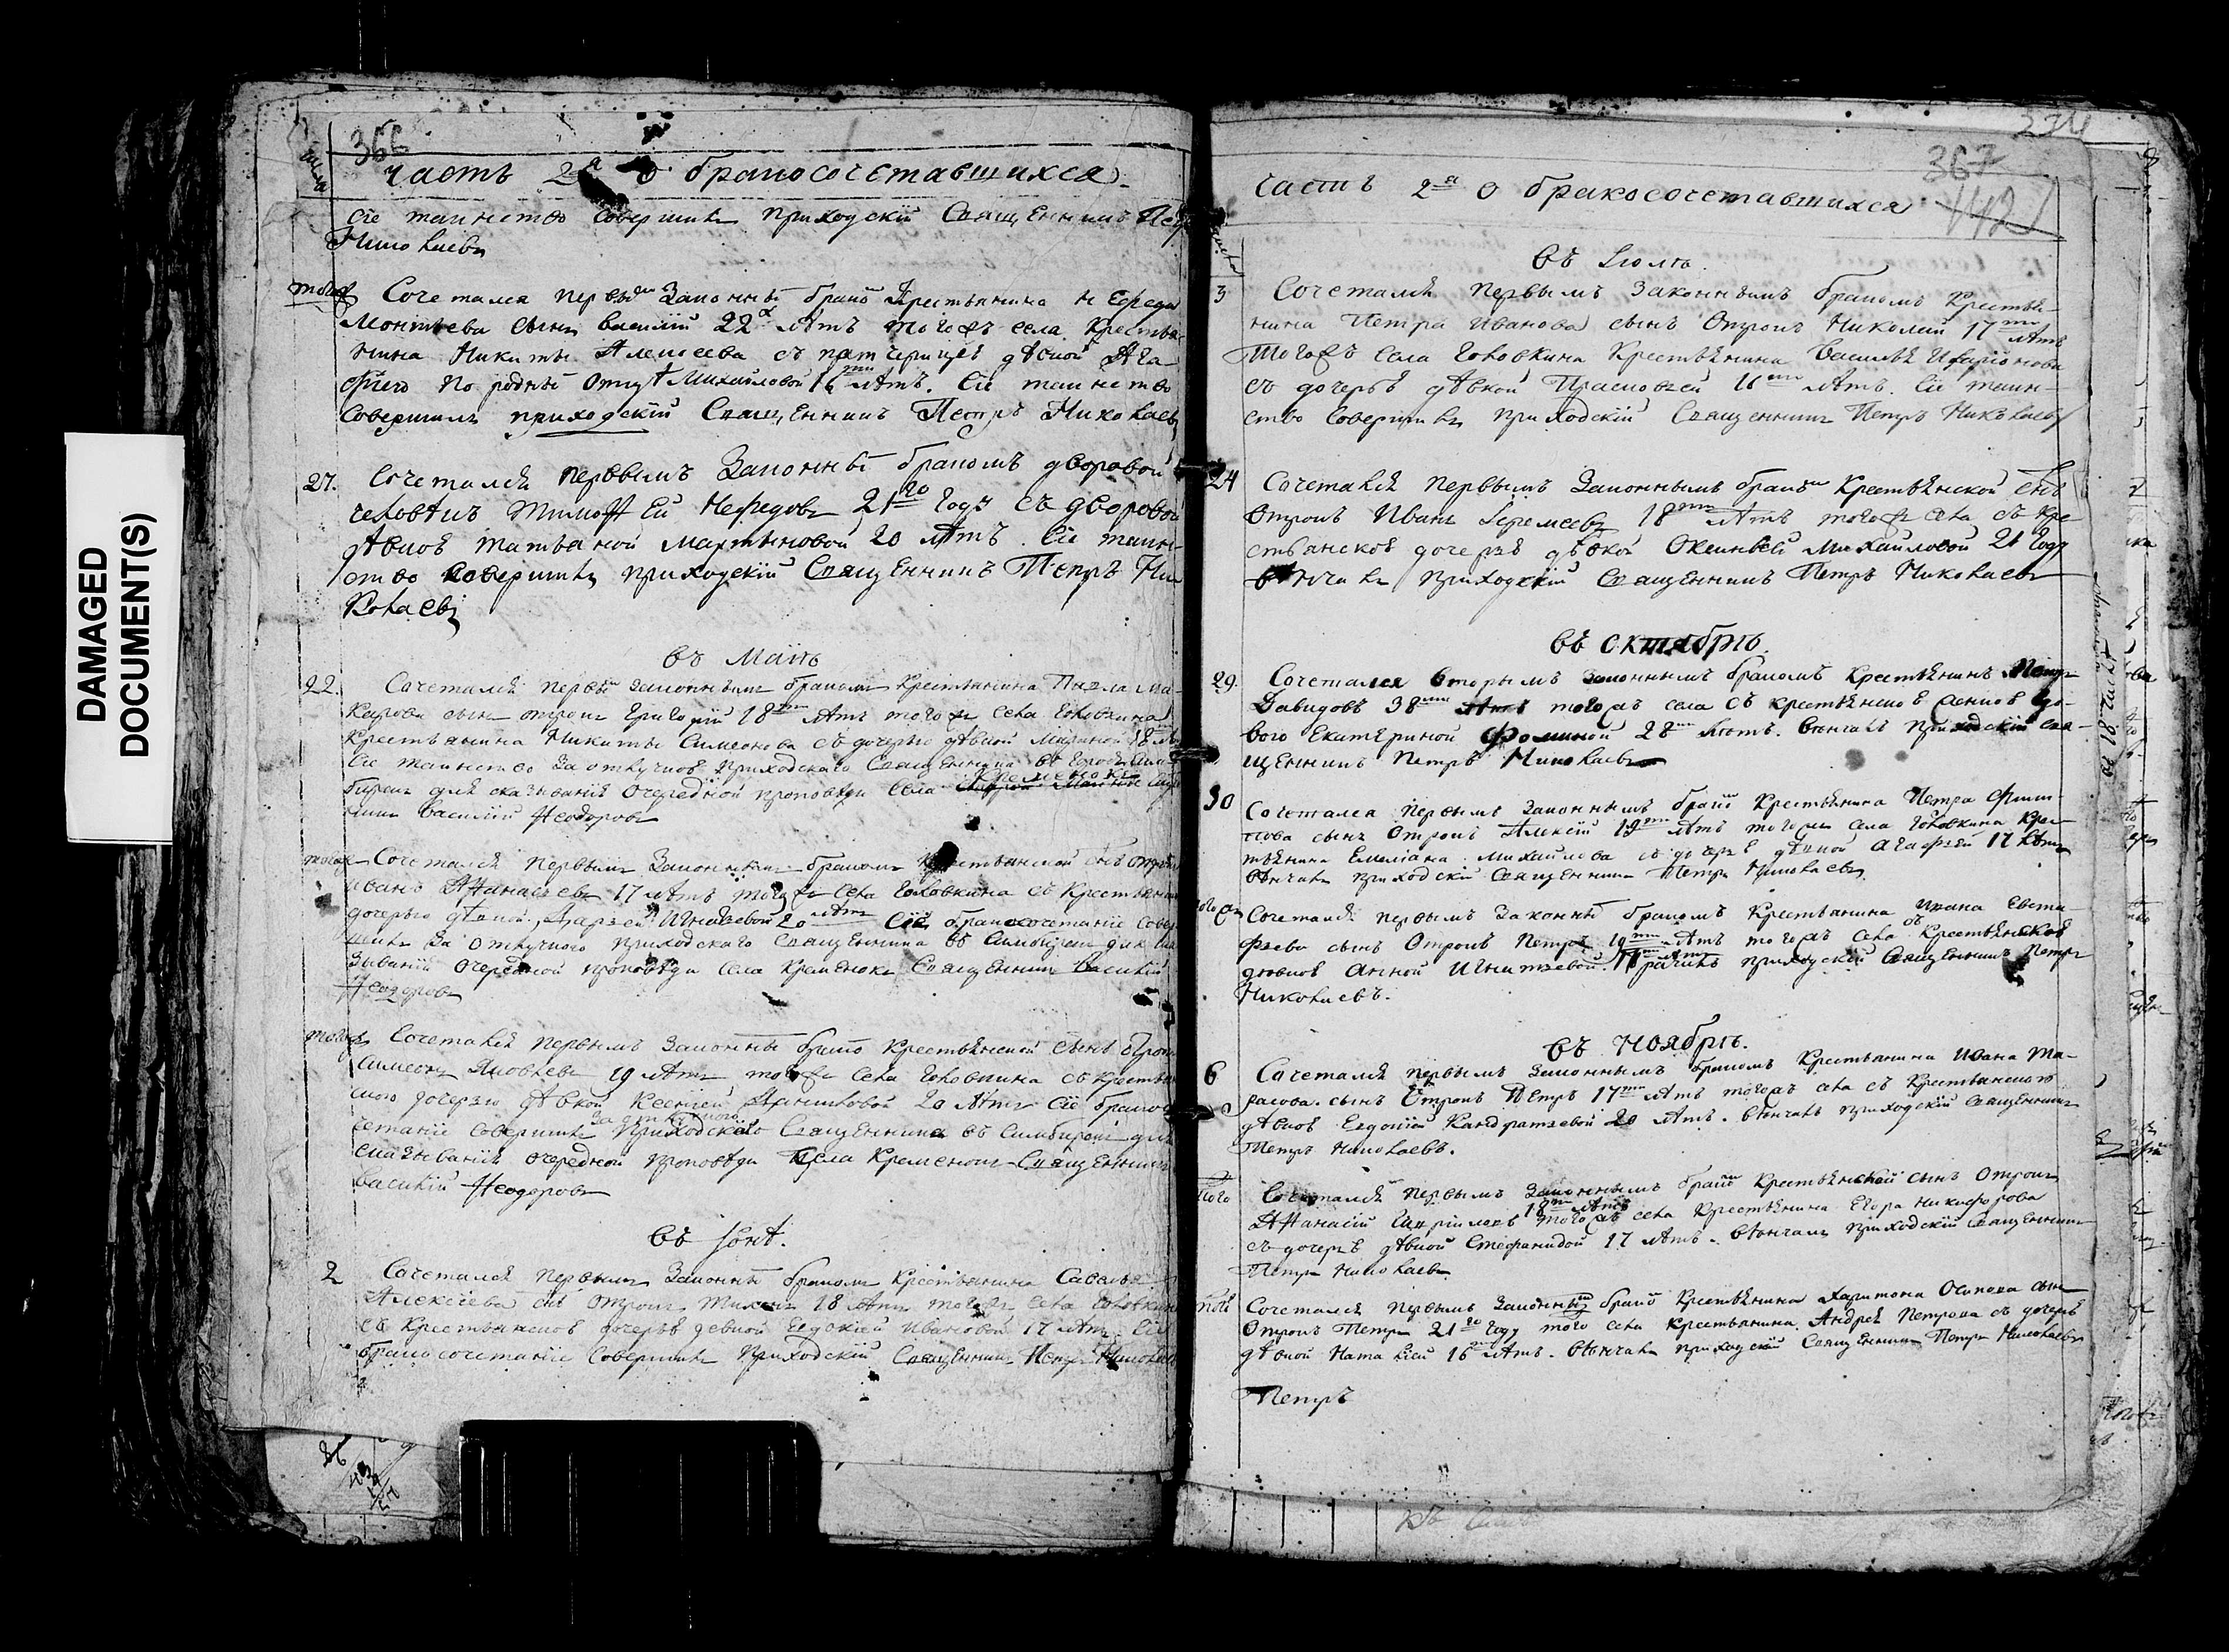 DAMAGED
DOCUMENT(S)
366
часть 2я о бракосочетавшихся
сіе таинство совершилъ приходскій Священникъ
Николаевъ
тогожъ Сочетался первымъ Законны бракомъ Крестьянина
сынъ василій 22х лѣтъ тогожъ села крестья
нина Никиты Алексеева съ патчерицей дѣвкой Ага
фіею по родной отцу Михайловой 16 лѣтъ. Сіе таинство
совершилъ приходскій Священникъ Петръ Николаевъ
27. Сочтался первымъ Законны бракомъ дворовой
человѣкъ Тимоѳей Нефедовъ 21го году съ дворовой
дѣвкой татьяной мартыновой 20 лѣтъ. Сіе таин
ство совершилъ приходскій Священникъ Петръ Ни
колаевъ
въ Маіѣ
22. Сочетался первы законнымъ бракомъ крестьянина Павла Ма
карова сынъ отрокъ Григорій 18 лѣтъ тогожъ села Головкина
Крестьянина Никиты Симеонова съ дочерью дѣвкой 18
Сіе таинство за отлучкой приходскаго Священника въ
бирскъ для сказыванія очередной проповѣди села Кременокъ
василій Ѳеодоровъ
тогожъ Сочетался первымъ Законнымъ бракомъ крестьянской сынъ отрокъ
иванъ Аѳанасьевъ 17 лѣтъ тогожъ села Головкина съ крестьянской
дочерью дѣвкой Дарьей Игнатьевой 20 лѣтъ Сіе бракосочетаніе совер
шилъ за отлучкою приходскаго Священника въ Симбирскъ для ска
зыванія очередной проповѣди села Кременокъ Священникъ Василій
Ѳеодоровъ
тогожъ Сочетался первымъ Законны брако крестьянской сынъ отрокъ
Симеонъ Яковлевъ 19 лѣтъ тогожъ села Головкина съ крестьян
скою дочерью дѣвкой Ксеніей Даниловой 20 лѣтъ Сіе бракосо
четаніе совершилъ за отлучкою приходскаго Священника въ Симбирскъ для
сказыванія очередной проповѣди села Кременокъ Священникъ
Василій Ѳеодоровъ
въ Іюнѣ.
2 Сочетался первымъ Законны бракомъ крестьянина Савелья
Алексѣева сы отрокъ Тихонъ 18 лѣтъ тогожъ села Головкина
съ крестьянской дочерью девкой Евдокіей Ивановой 17 лѣтъ. Сіе
бракосочетаніе совершилъ приходскій Священникъ Петръ Николаевъ
367
часть 2я о бракосочетавшихся
въ Іюлѣ.
3 Сочетался первымъ законнымъ бракомъ крестья-
нина Петра иванова сынъ отрокъ Николай 17ти лѣтъ
тогожъ села Головкина крестьянина Василья
съ дочерью дѣвкой Прасковьей 16 лѣтъ. Сіе таин-
ство совершилъ приходскій Священникъ Петръ Николаевъ
24 Сочетался первымъ Законнымъ бракомъ крестьянской сынъ
отрокъ Иванъ Іеремеевъ 18ти лѣтъ тогожъ села съ кре
стьянской дочерью дѣвкой Михайловой 21 году
вѣнчалъ приходскій Священникъ Петръ Николаевъ
въ октябрѣ.
29. Сочетался вторымъ законнымъ бракомъ крестьянинъ Петръ
Давидовъ 38ми лѣтъ тогожъ села съ крестьянской женкой вдо-
вою Екатериной Фоминой 28ми лѣтъ. вѣнчалъ приходскій Свя-
щенникъ Петръ Николаевъ
30 Сочетался первымъ законнымъ брако крестьянина Петра Фили-
пова сынъ отрокъ Алексій 19ти лѣтъ тогожъ села Головкина кре-
стьянина Емеліана Михайлова съ дочерью дѣвкой Агафьей 17 лѣтъ
вѣнчалъ приходскій Священникъ Петръ Николаевъ
тогожъ Сочетался первымъ законны бракомъ крестьянина ивана Евста-
фьева сынъ отрокъ Петръ 19ти лѣтъ тогожъ села съ крестьянской
дѣвкой Анной Игнатьевой. приходскій Священникъ Петръ
Николаевъ.
въ Ноябрѣ.
6 Сочетался первымъ законнымъ бракомъ крестьянина ивана та-
расова сынъ отрокъ Петръ 17ти лѣтъ тогожъ села съ крестьянской
дѣвкой Евдокіей Кандратьевой 20 лѣтъ. вѣнчалъ приходскій Священникъ
Петръ Николаевъ.
того Сочетался первымъ Законнымъ брако крестьянской сынъ отрокъ
Аѳанасій Гавріиловъ 18ти лѣтъ тогожъ села крестьянина Егора Никифорова
съ дочерью дѣвкой Стефанидой 17 лѣтъ. вѣнчалъ приходскій Священникъ
Петръ Николаевъ
Сочетался первымъ законны брако крестьянина Харитона Осипова сынъ
отрокъ Петръ 21го году того села крестьянина Андрея Петрова съ дочерью
дѣвкой Наталіей 16 лѣтъ. вѣнчалъ приходскій Священникъ Петръ Николаевъ
Петръ